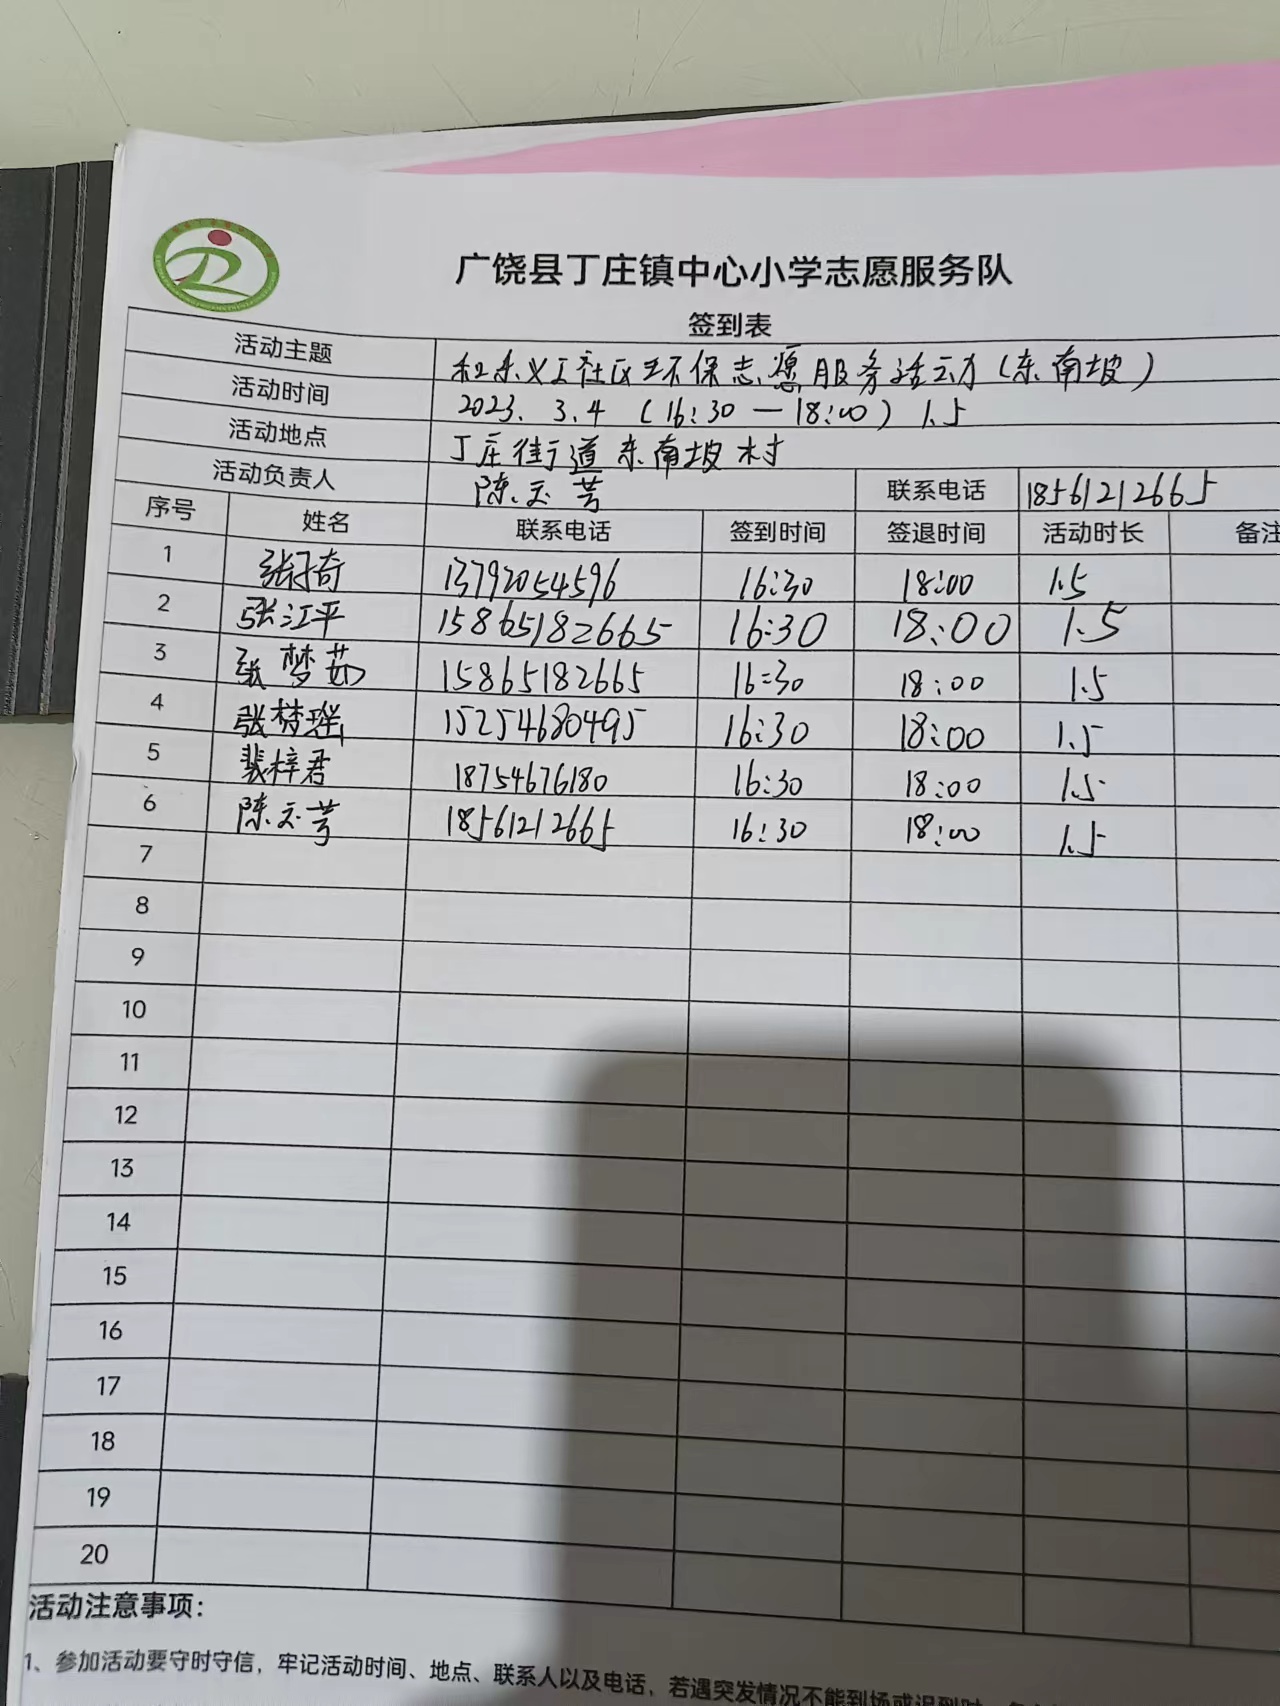 广饶县丁庄镇中心小学志愿服务队
签到表
活动主题 社区环保志愿服务活动(东南坡)
活动时间 2023. 3.4 (16:30 — 18:00) 1.5
活动地点 丁庄街道东南坡村
活动负责人 陈玉芳 联系电话 18561212665
序号 姓名 联系电话 签到时间 签退时间 活动时长 备注
1 张子奇 13792054596 16:30 18:00 1.5
2 张江平 15865182665 16:30 18:00 1.5
3 张梦茹 15865182665 16:30 18:00 1.5
4 张梦瑶 15254680495 16:30 18:00 1.5
5 裴梓君 18754676180 16:30 18:00 1.5
6 陈玉芳 18561212665 16:30 18:00 1.5
7
8
9
10
11
12
13
14
15
16
17
18
19
20
活动注意事项:
1、参加活动要守时守信,牢记活动时间、地点、联系人以及电话,若遇突发情况不能到场或迟到时,